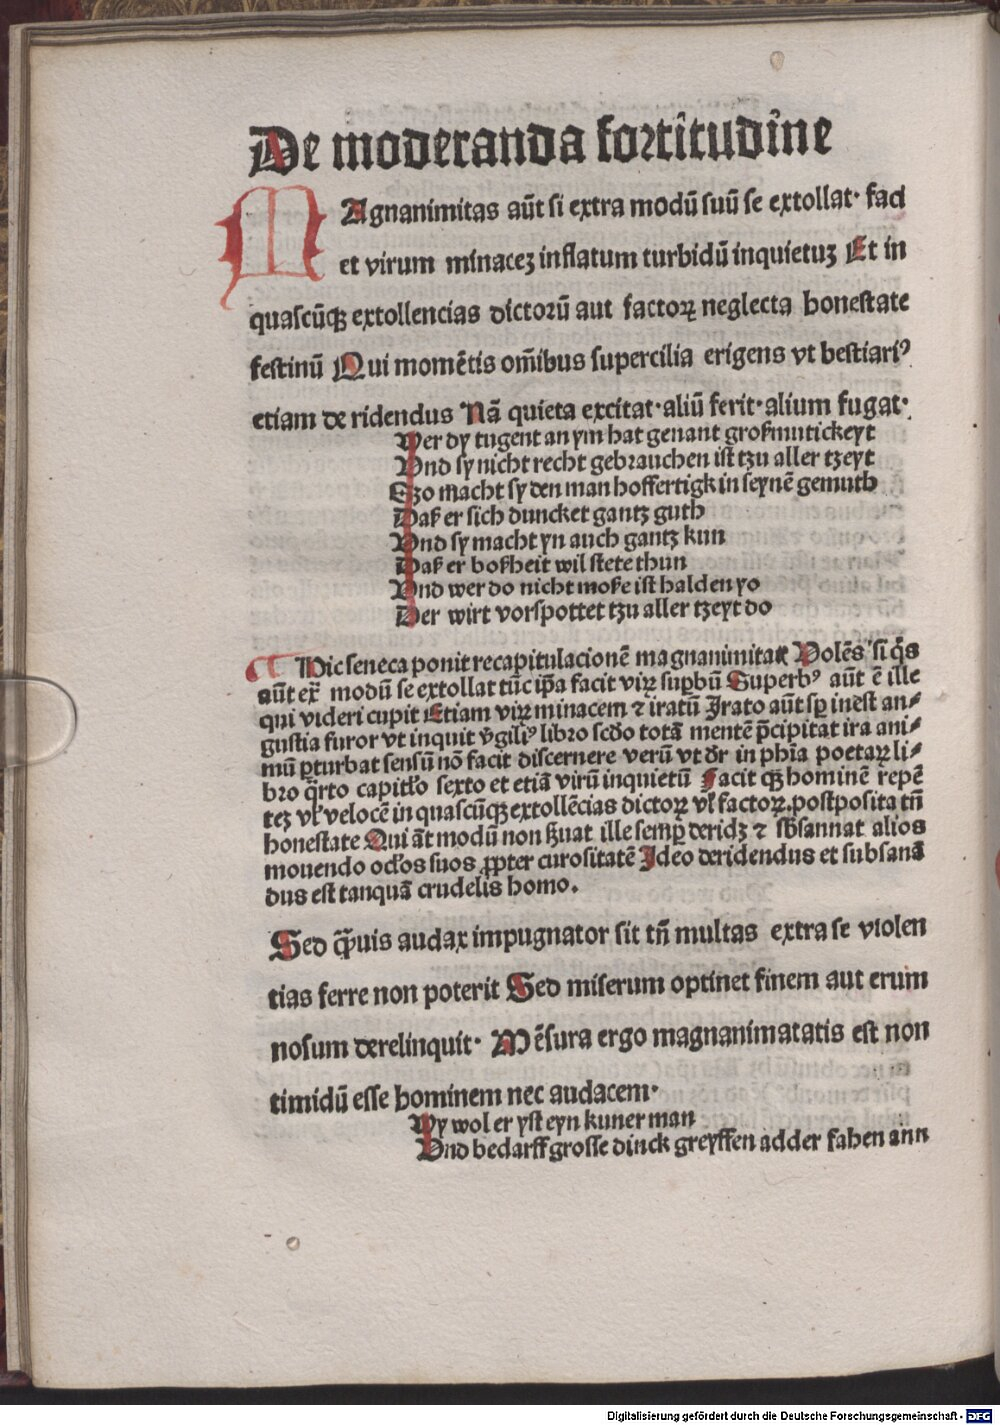 De moderanda fortitudine
MAgnanimitas aūt si extra modū suū se extollat· faci
et virum minacez inflatum turbidū inquietuz Et in
quascūqꝫ extollencias dictorū aut factoꝝ neglecta honestate
festinū Qui momētis om̄ibus supercilia erigens vt bestiariꝰ
etiam deridendus Nā quieta excitat·aliū ferit·alium fugat·
Wer dy tugent an ym hat genant großmutickeyt
Vnd sy nicht recht gebrauchen ist tzu aller tzeyt
Szo macht sy den man hoffertigk in seynē gemuth
Daß er sich duncket gantz guth
Vnd sy macht yn auch gantz kun
Daß er boßheit wil stete thun
Vnd wer do nicht moße ist halden yo
Der wirt vorspottet tzu aller tzeyt do
Hic seneca ponit recapitulacionē magnanimitatꝭ Volēs si q̄s
aūt ex̄ modū se extollat tūc ip̄a facit viꝝ suꝑbū Superbꝰ aūt ē ille
qui videri cupit Etiam viꝝ minacem ⁊ iratū Irato aūt sꝑ inest an⸗
gustia furor vt inquit v̄giliꝰ libro scd̄o totā mentē p̄cipitat ira ani⸗
mū ꝑturbat sensū nō facit discernere verū vt dr̄ in ph̄ia poetaꝝ li⸗
bro q̄rto capitl̄o sexto et etiā virū inquietū Facit qꝫ hominē repē
tez vl̄ velocē in quascūqꝫ extollēcias dictoꝝ vl̄ factoꝝ.postposita tn̄
honestate Qui āt modū non ẜuat ille semꝑ deridꝫ ⁊ sb̄sannat alios
mouendo ocl̄os suos ꝓpter curositatē Ideo deridendus et subsanā
dus est tanquā crudelis homo.
Sed q̄uis audax impugnator sit tn̄ multas extra se violen
tias ferre non poterit Sed miserum optinet finem aut erum
nosum derelinquit· Mēsura ergo magnanimatatis est non
timidū esse hominem nec audacem·
Wy wol er yst eyn kuner man
Vnd bedarff grosse dinck greyffen adder fahen ann
Digitalisierung gefördert durch die Deutsche Forschungsgemeinschaft - DFG